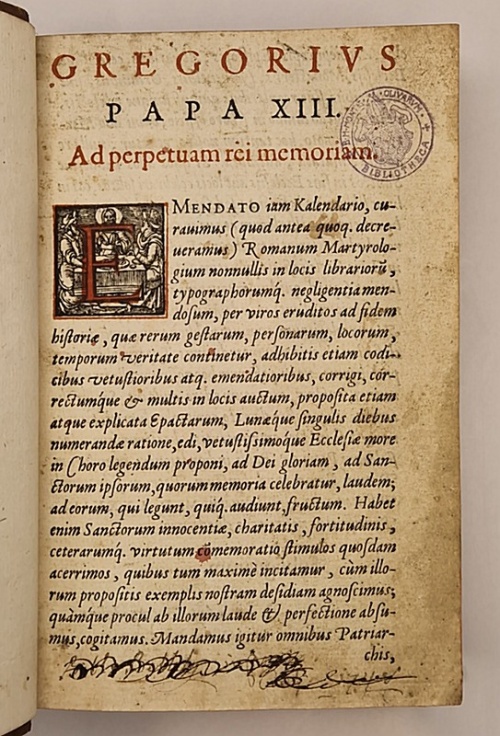 GREGORIVS
PAPA XIII.
Ad perpetuam rei memoriam.
EMENDATO iam Kalendario, cu-
rauimus (quod antea quoq. decre-
ueramus) Romanum Martyrolo-
gium nonnullis in locis librariorũ,
typographorumq́. negligentia men-
dosum, per viros eruditos ad fidem
historiæ, quæ rerum gestarum, personarum, locorum,
temporum veritate continetur, adhibitis etiam codi-
cibus vetustioribus atq. emendatioribus, corrigi, cor-
rectumq́ue & multis in locis auctum, proposita etiam
atque explicata Epactarum, Lunæque singulis diebus
numerandæ ratione, edi, vetustissimoq́ue Ecclesiæ more
in Choro legendum proponi, ad Dei gloriam, ad San-
ctorum ipsorum, quorum memoria celebratur, laudem;
ad eorum, qui legunt, quiq́. audiunt fructum. Habet
enim Sanctorum innocentiæ, charitatis, fortitudinis,
ceterarumq́. virtutum cõmemoratio stimulos quosdam
acerrimos, quibus tum maximè incitamur, cùm illo-
rum propositis exemplis nostram desidiam agnoscimus;
quàmq́ue procul ab illorum laude & perfectione absu-
mus, cogitamus. Mandamus igitur omnibus Patriar-
chis,
OLIVARVM
BIBLIOTHECA